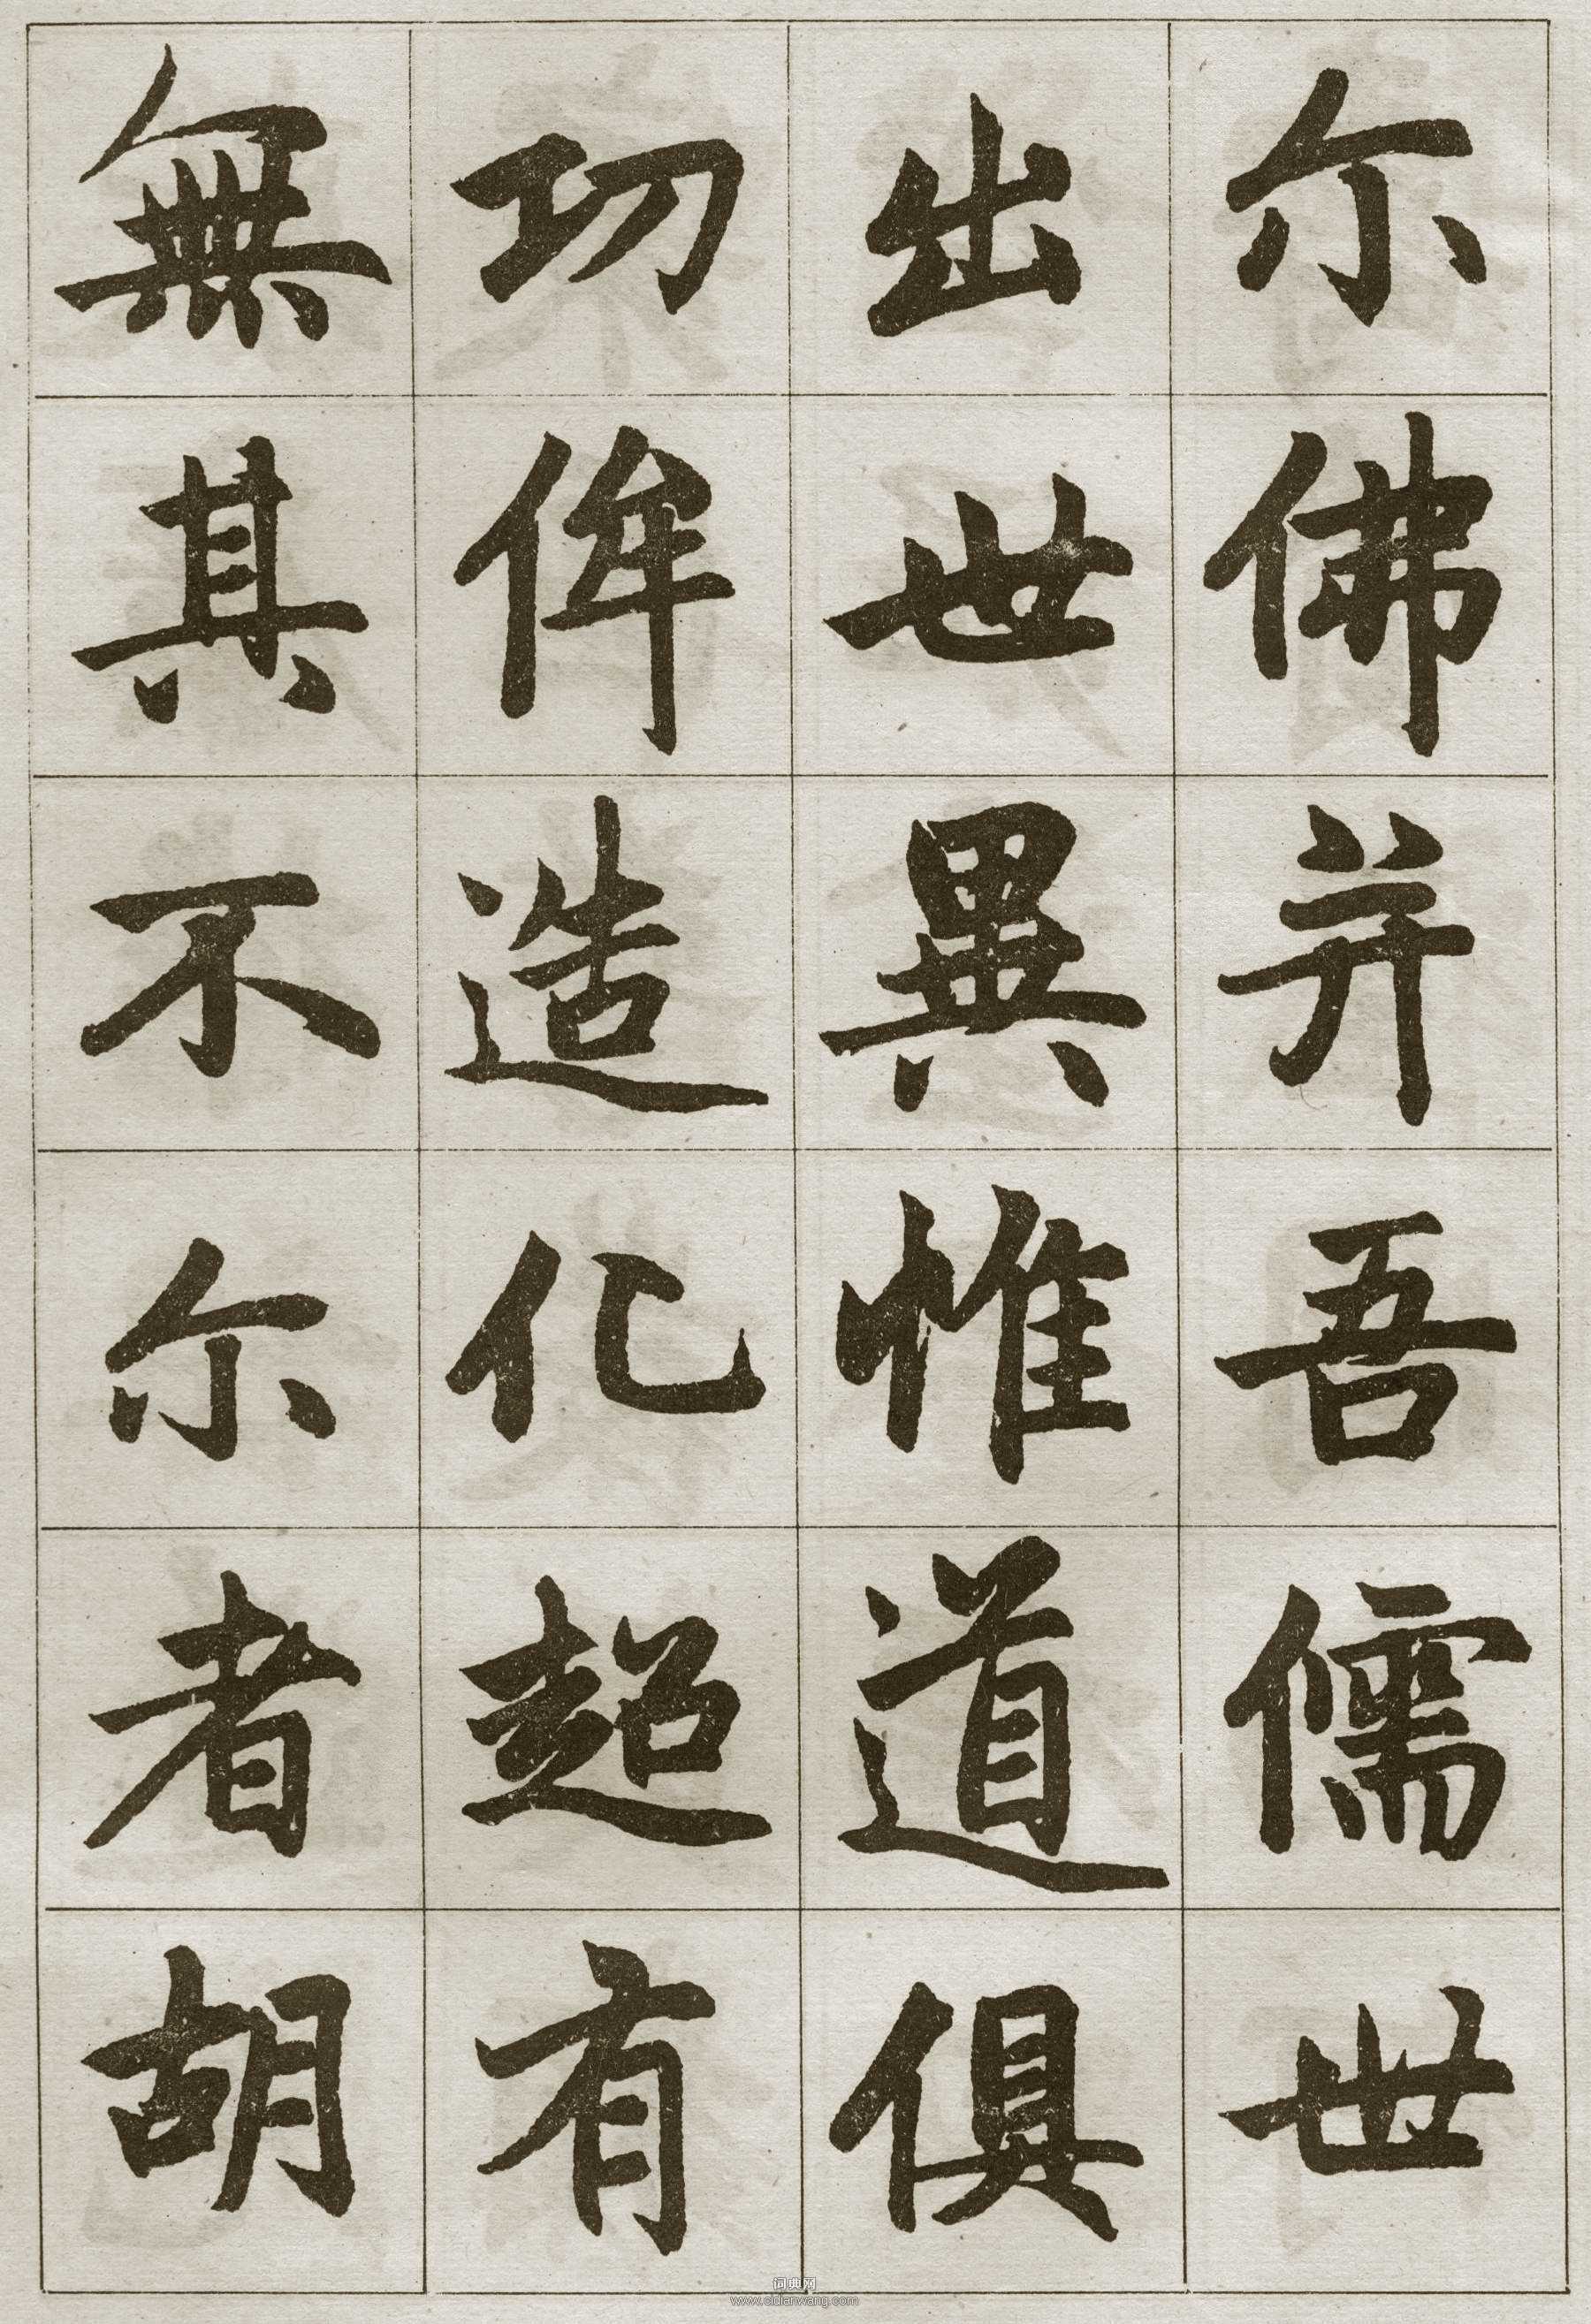 尓佛并吾儒世
出世異惟道俱
功侔造化超有
無其不尓者胡
词典网
www.cidianwang.com